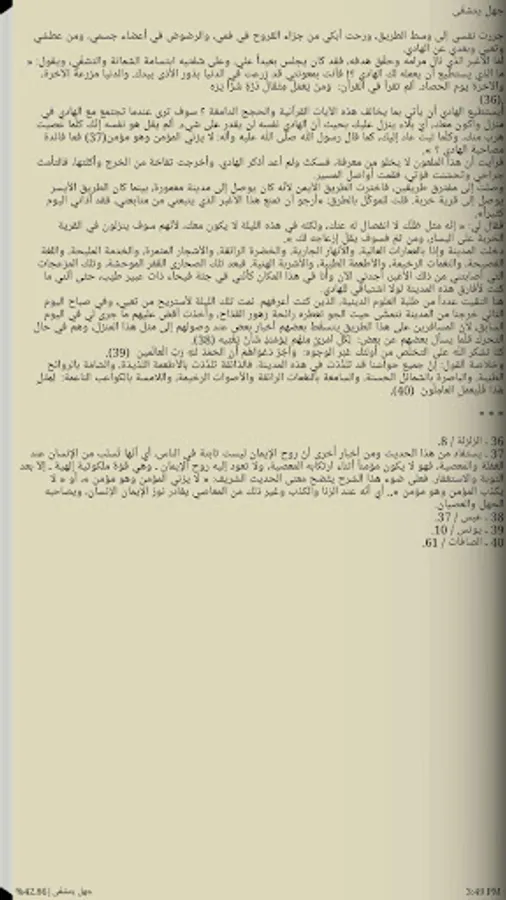 جهل يتشفى
جررت نفسي إلى وسط الطريق، ورحت أبكي من جراء القروح في فمي، والرضوض في أعضاء جسمي، ومن عطشي
وتعبي وبعدي عن الهادي.
أما الأغبر الذي نال مرامه وحقق هدفه، فقد كان يجلس بعيداً عني، وعلى شفتيه ابتسامة الشماتة والتشفي، ويقول: «
ما الذي يستطيع أن يعمله لك الهادي ؟! فأنت بمعونتي قد زرعت في الدنيا بذور الأذى بيدك، والدنيا مزرعة الآخرة،
والآخرة يوم الحصاد. ألم تقرأ في القرآن: وَمَن يَعْمَلْ مِثْقَالَ ذَرَّةٍ شَرّاً يَرَهُ
(36)
أيستطيع الهادي أن يأتي بما يخالف هذه الآيات القرآنية والحجج الدامغة ؟ سوف ترى عندما تجتمع مع الهادي في
منزل وأكون معك، أي بلاء ينزل عليك، بحيث أن الهادي نفسه لن يقدر على شيء. ألم يقل هو نفسه إنك كلما عصيت
هرب منك، وكلما تبت عاد إليك، كما قال رسول الله صلّى الله عليه وآله: لا يزني المؤمن وهو مؤمن(37) فما فائدة
مصاحبة الهادي ؟ ».
فرأيت أن هذا الملعون لا يخلو من معرفة، فسكتّ ولم أعد أذكر الهادي. وأخرجت تفاحة من الخرج وأكلتها، فالتأمت
جراحي وتحسنت قوتي، فقمت أواصل المسير.
وصلت إلى مفترق طريقين، فاخترت الطريق الأيمن لأنه كان يوصل إلى مدينة معمورة، بينما كان الطريق الأيسر
يوصل إلى قرية خربة. قلت للموكّل بالطرق: «أرجو أن تمنع هذا الأغبر الذي يتبعني من متابعتي، فقد آذاني اليوم
كثيراً».
فقال لي: « إنه مثل ظلّك لا انفصال له عنك، ولكنه في هذه الليلة لا يكون معك، لأنهم سوف ينزلون في القرية
الخربة على اليسار، ومن ثم فسوف يقل إزعاجه لك ».
دخلت المدينة وإذا بالعمارات العالية، والأنهار الجارية، والخضرة الرائقة، والأشجار المثمرة، والخدمة المليحة، واللغة
الفصيحة، والنغمات الرخيمة، والأطعمة الطيبة، والأشربة الهنية. فبعد تلك الصحارى القفر الموحشة، وتلك المزعجات
التي أصابتني من ذلك الأغبر، أجدني الآن وأنا في هذا المكان كأنني في جنة فيحاء ذات عبير طيب، حتى أنني ما
كنت لأفارق هذه المدينة لولا اشتياقي للهادي.
هنا التقيت عدداً من طلبة العلوم الدينية، الذين كنت أعرفهم. نمت تلك الليلة لأستريح من تعبي، وفي صباح اليوم
التالي خرجنا من المدينة نتمشى حيث الجو تعطره رائحة زهور التفاح، وأخذت أقص عليهم ما جرى لي في اليوم
السابق، لأن المسافرين على هذا الطريق يتسقط بعضهم أخبار بعض عند وصولهم إلى مثل هذا المنزل، وهم في حال
التحرك قلّما يسأل بعضهم عن بعض: لِكُلِّ امرِئٍ مِنْهُم يَوْمَئِذٍ شَأنٌ يُغْنِيه (38).
كنا نشكر الله على التخلص من أولئك غبر الوجوه: وَآخِرُ دَعْوَاهُم أَنِ الحَمْدُ للهِ رَبِّ العَالَمِين (39).
وخلاصة القول: إنّ جميع حواسنا قد تلذّذت في هذه المدينة. فالذائقة تلذّذت بالأطعمة اللذيذة، والشامة بالروائح
الطيبة، والباصرة بالشمائل الحسنة، والسامعة بالنغمات الرائقة والأصوات الرخيمة، واللامسة بالكواعب الناعمة: لِمِثْلِ
هذا فَلْيعمل العاملون (40).
* * *
36 ـ الزلزلة / 8.
37 ـ يستفاد من هذا الحديث ومن أخبار أخرى أن روح الإيمان ليست ثابتة في الناس، أي أنها تُسلب من الإنسان عند
الغفلة والمعصية، فهو لا يكون مؤمناً أثناء ارتكابه المعصية، ولا تعود إليه روح الإيمان ـ وهي قوة ملكوتية إلهية ـ إلا بعد
التوبة والاستغفار. فعلى ضوء هذا الشرح يتضح معنى الحديث الشريف: « لا يزني المؤمن وهو مؤمن »، أو « لا
يكذب المؤمن وهو مؤمن »,. أي أنه عند الزنا والكذب وغير ذلك من المعاصي يغادر نورُ الإيمان الإنسان، ويصاحبه
الجهل والعصيان.
38 ـ عبس / 37.
39 ـ يونس / 10.
40 ـ الصافات / 61.
جهل يتشفى | 42.86%
3:49 PM